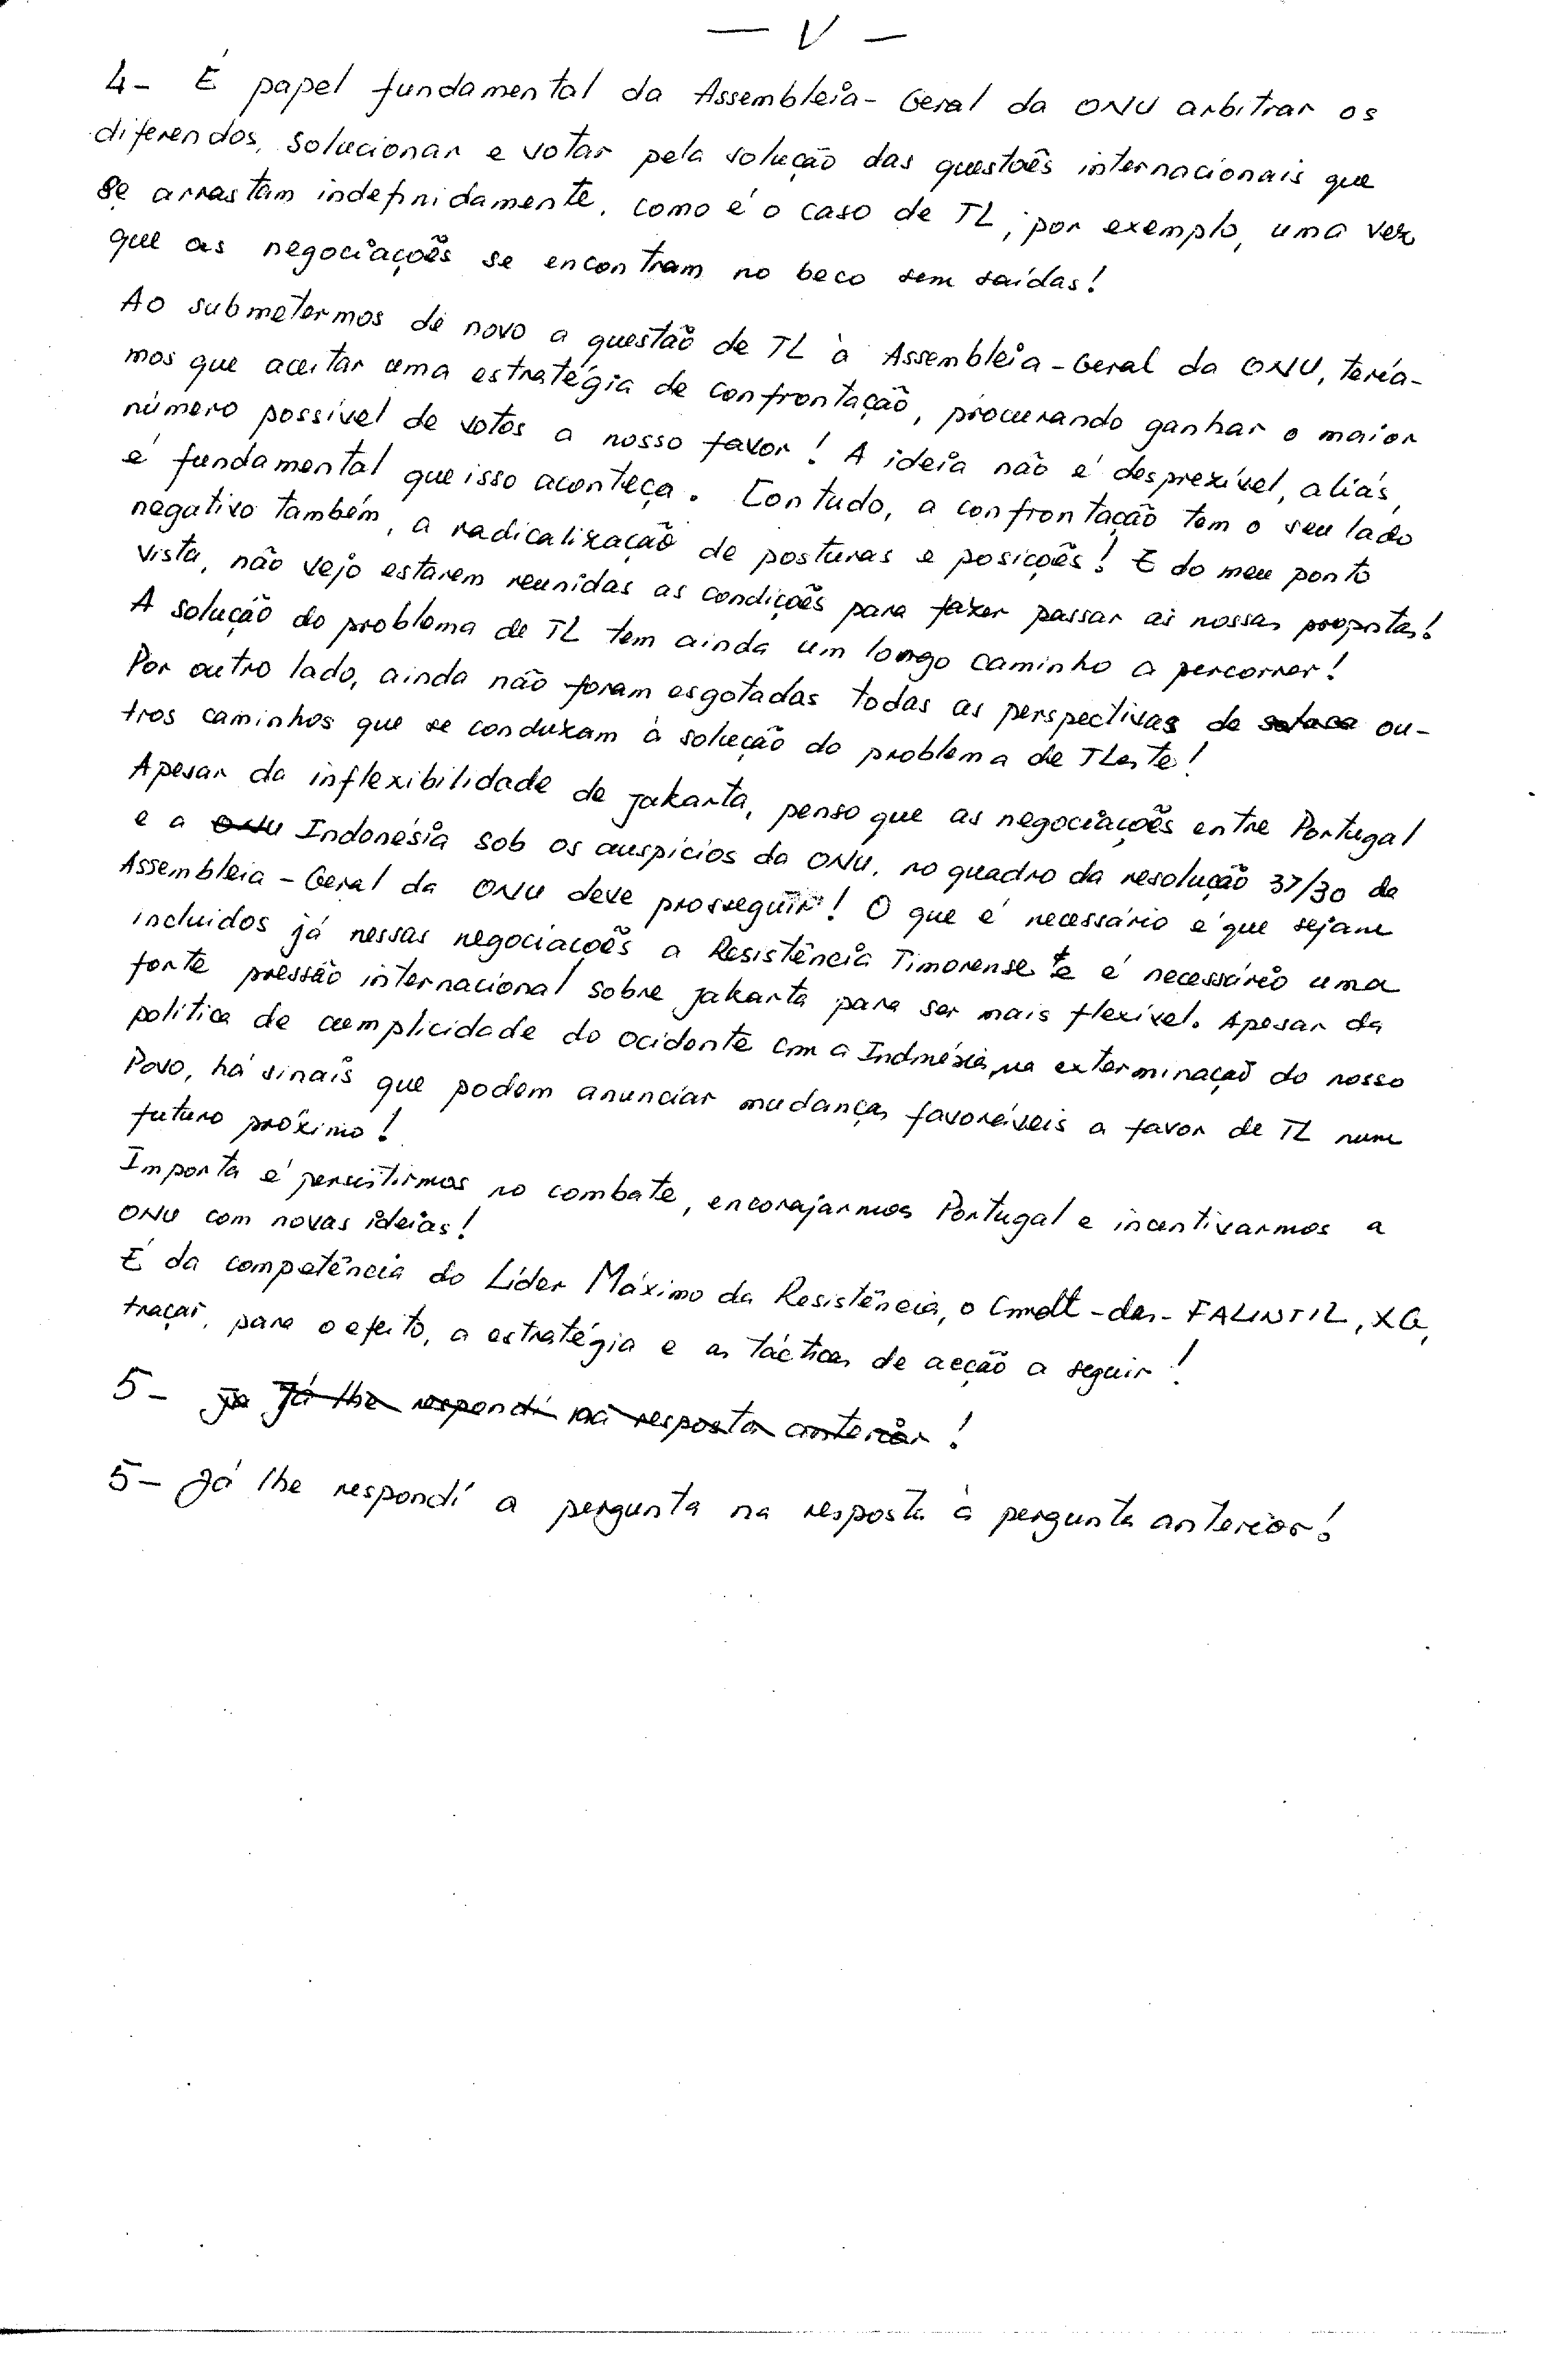 — V —
4- É papel fundamental da Assembleia-Geral da ONU arbitrar os
diferendos, solucionar e votar pela solução das questões internacionais que
se arrastam indefinidamente, como é o caso de TL, por exemplo, uma vez
que as negociações se encontram no beco sem saídas!
Ao submetermos de novo a questão de TL à Assembleia-Geral da ONU, tería-
mos que aceitar uma estratégia de confrontação, procurando ganhar o maior
número possível de votos a nosso favor! A ideia não é desprezível, aliás,
é fundamental que isso aconteça. Contudo, a confrontação tem o seu lado
negativo também, a radicalização de posturas e posições! E do meu ponto
vista, não vejo estarem reunidas as condições para fazer passar as nossas propostas!
A solução do problema de TL tem ainda um longo caminho a percorrer!
Por outro lado, ainda não foram esgotadas todas as perspectivas de ou-
tros caminhos que se conduzam à solução do problema de TLeste!
Apesar da inflexibilidade de Jakarta, penso que as negociações entre Portugal
e a ONU Indonésia sob os auspícios da ONU, no quadro da resolução 37/30 da
Assembleia-Geral da ONU deve prosseguir! O que é necessário é que sejam
incluidos já nessas negociações a Resistência Timorense e é necessário uma
forte pressão internacional sobre Jakarta para ser mais flexível. Apesar da
política de cumplicidade do ocidente com a Indonésia, na exterminação do nosso
Povo, há sinais que podem anunciar mudanças favoráveis a favor de TL num
futuro próximo!
Importa é persistirmos no combate, encorajarmos Portugal e incentivarmos a
ONU com novas ideias!
É da competência do Líder Máximo da Resistência, o Cmdt-das-FALINTIL, XG,
traçar, para o efeito, a estratégia e as tácticas de acção a seguir!
5- Ja Já lhe respondi na resposta anterior!
5- Já lhe respondí a pergunta na resposta à pergunta anterior!